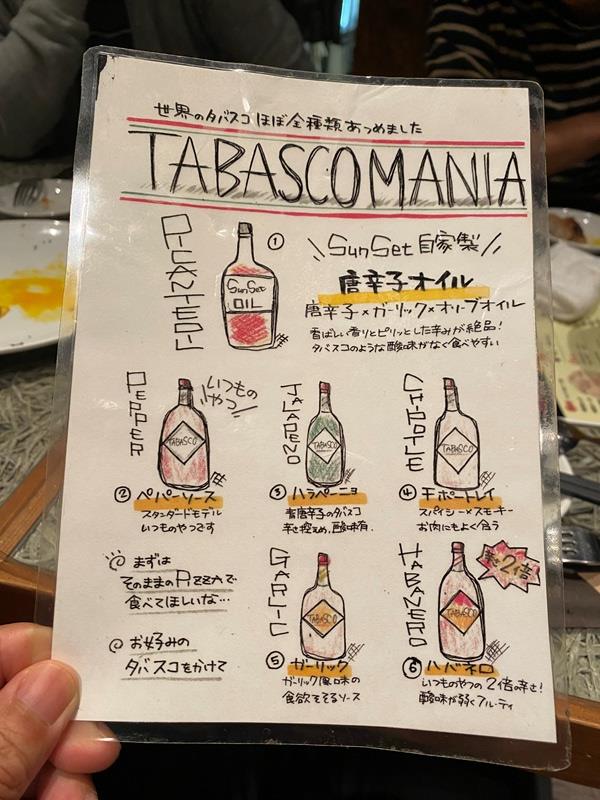 世界のタバスコほぼ全種類あつめました
TABASCOMANIA
PICANTEOIL
SunSet
OIL
①
\\SunSet自家製//
唐辛子オイル
唐辛子×ガーリック×オリーブオイル
香ばしい香りとピリッとした辛みが絶品!
タバスコのような酸味がなく食べやすい
PEPPER
いつものやつ
TABASCO
②ペパーソース
スタンダードモデル
いつものやつです
JALAPENO
TABASCO
③ハラペーニョ
青唐辛子のタバスコ
辛さ控えめ、酸味有.
CHIPOTLE
TABASCO
④チポートレイ
スパイシー×スモーキー
お肉にもよく合う
まずは
そのままのPIZZAで
食べてほしいな…
お好みの
タバスコをかけて
GARLIC
TABASCO
⑤ガーリック
ガーリック風味の
食欲そそるソース
HABANERO
辛さ2倍
TABASCO
⑥ハバネロ
いつものやつの2倍の辛さ!
酸味が弱くフルーティ